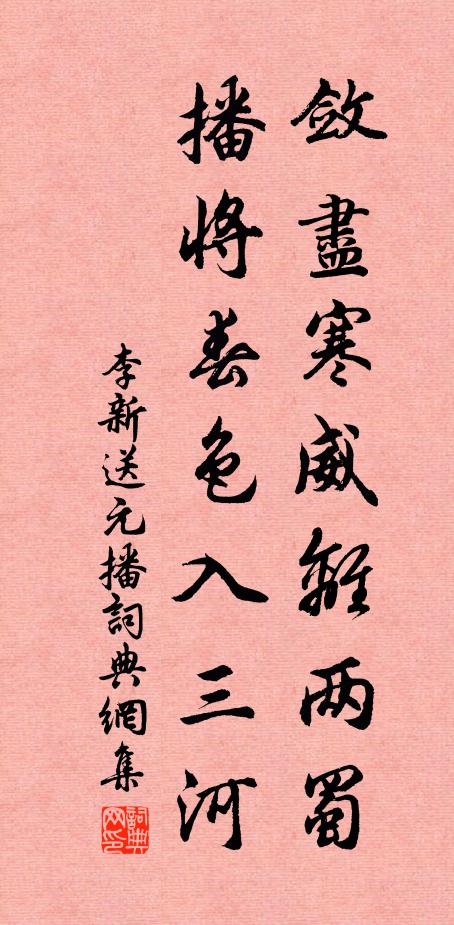 斂盡寒威離两蜀
播將春色入三河
李新送元播詞典網集
詞典网印